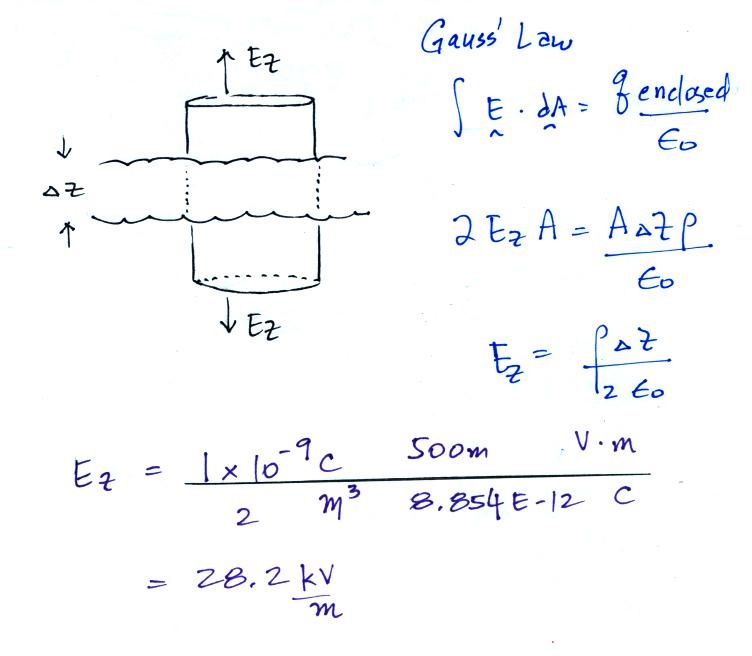 Gauss' Law
E_z
∫ E · dA = q enclosed / ϵ₀
↓
Δz
↑
2 E_z A = A Δz ρ / ϵ₀
E_z
E_z = ρ Δz / 2 ϵ₀
E_z = 1 × 10⁻⁹ C 500m V·m / 2 m³ 8.854E-12 C
= 28.2 kV / m